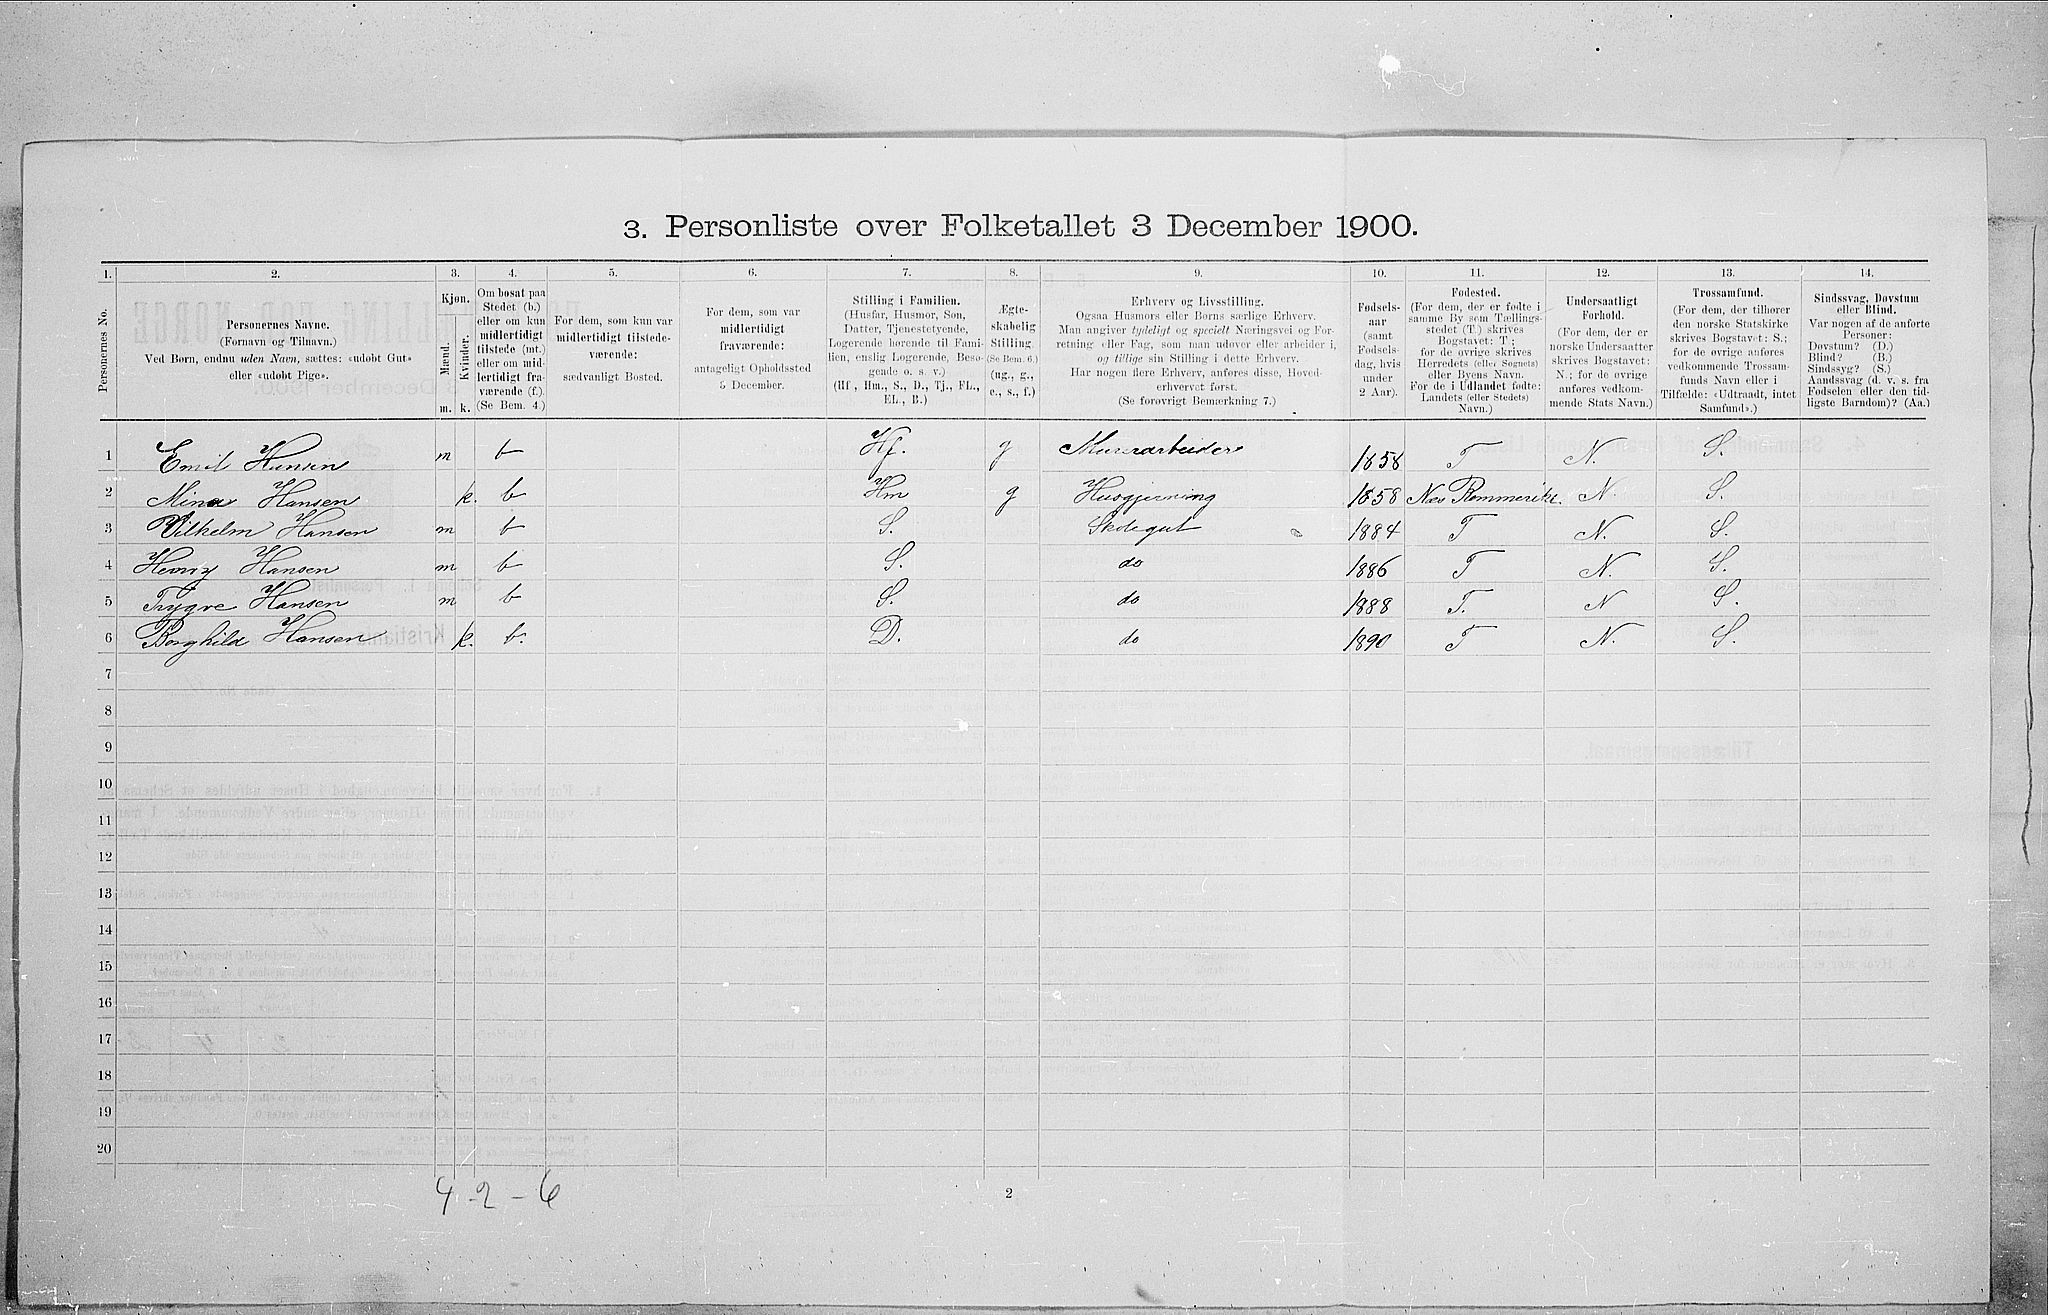 3. Personliste over Folketallet 3 December 1900.
1. 2. 3. 4. 5. 6. 7. 8. 9. 10. 11. 12. 13. 14.
Personernes No.
Personernes Navne.
(Fornavn og Tilnavn.)
Ved Børn, endnu uden Navn, sættes: «udøbt Gut»
eller «udøbt Pige».
Kjøn.
Mænd.
Kvinder.
m. k.
Om bosat paa
Stedet (b.)
eller om kun
midlertidigt
tilstede (mt.)
eller om mid-
lertidigt fra-
værende (f.).
(Se Bem. 4.)
For dem, som kun var
midlertidigt tilstede-
værende:
sædvanligt Bosted.
For dem, som var
midlertidigt
fraværende:
antageligt Opholdssted
5 December.
Stilling i Familien.
(Husfar, Husmor, Søn,
Datter, Tjenestetyende,
Logerende hørende til Fami-
lien, enslig Logerende, Besø-
gende o. s. v.)
(Hf., Hm., S., D., Tj., FL.,
EL., B.)
Ægte-
skabelig
Stilling.
(Se Bem. 6.)
(ug., g.,
e., s., f.)
Erhverv og Livsstilling.
Ogsaa Husmors eller Børns særlige Erhverv.
Man angiver tydeligt og specielt Næringsvei og For-
retning eller Fag, som man udøver eller arbeider i,
og tillige sin Stilling i dette Erhverv.
Har nogen flere Erhverv, anføres disse, Hoved-
erhvervet først.
(Se forøvrigt Bemærkning 7.)
Fødsels-
aar
(samt
Fødsels-
dag, hvis
under
2 Aar).
Fødested.
(For dem, der er fødte i
samme By som Tællings-
stedet (T.) skrives
Bogstavet: T;
for de øvrige skrives
Herredets (eller Sognets)
eller Byens Navn.
For de i Udlandet fødte:
Landets (eller Stedets)
Navn.)
Undersaatligt
Forhold.
(For dem, der er
norske Undersaatter
skrives Bogstavet:
N.; for de øvrige
anføres vedkom-
mende Stats Navn.)
Trossamfund.
(For dem, der tilhører
den norske Statskirke
skrives Bogstavet: S.;
for de øvrige anføres
vedkommende Trossam-
funds Navn eller i
Tilfælde: «Udtraadt, intet
Samfund».)
Sindssvag, Døvstum
eller Blind.
Var nogen af de anførte
Personer:
Døvstum? (D.)
Blind? (B.)
Sindssyg? (S.)
Aandssvag (d. v. s. fra
Fødselen eller den tid-
ligste Barndom)? (Aa.)
1 Emil Hansen m b Hf. g Murerarbeider 1858 T N. S.
2 Mina Hansen k. b Hm g Husgjerning 1858 Næs Rommerike. N. S.
3 Vilhelm Hansen m b S. Skolegut 1884 T N. S.
4 Henry Hansen m b S. do 1886 T N. S.
5 Trygve Hansen m b S. do 1888 T. N S.
6 Borghild Hansen k. b. D. do 1890 T N. S.
7
8
9
10
11
12
13
14
15
16
17
18
19
20
4 - 2 - 6
2